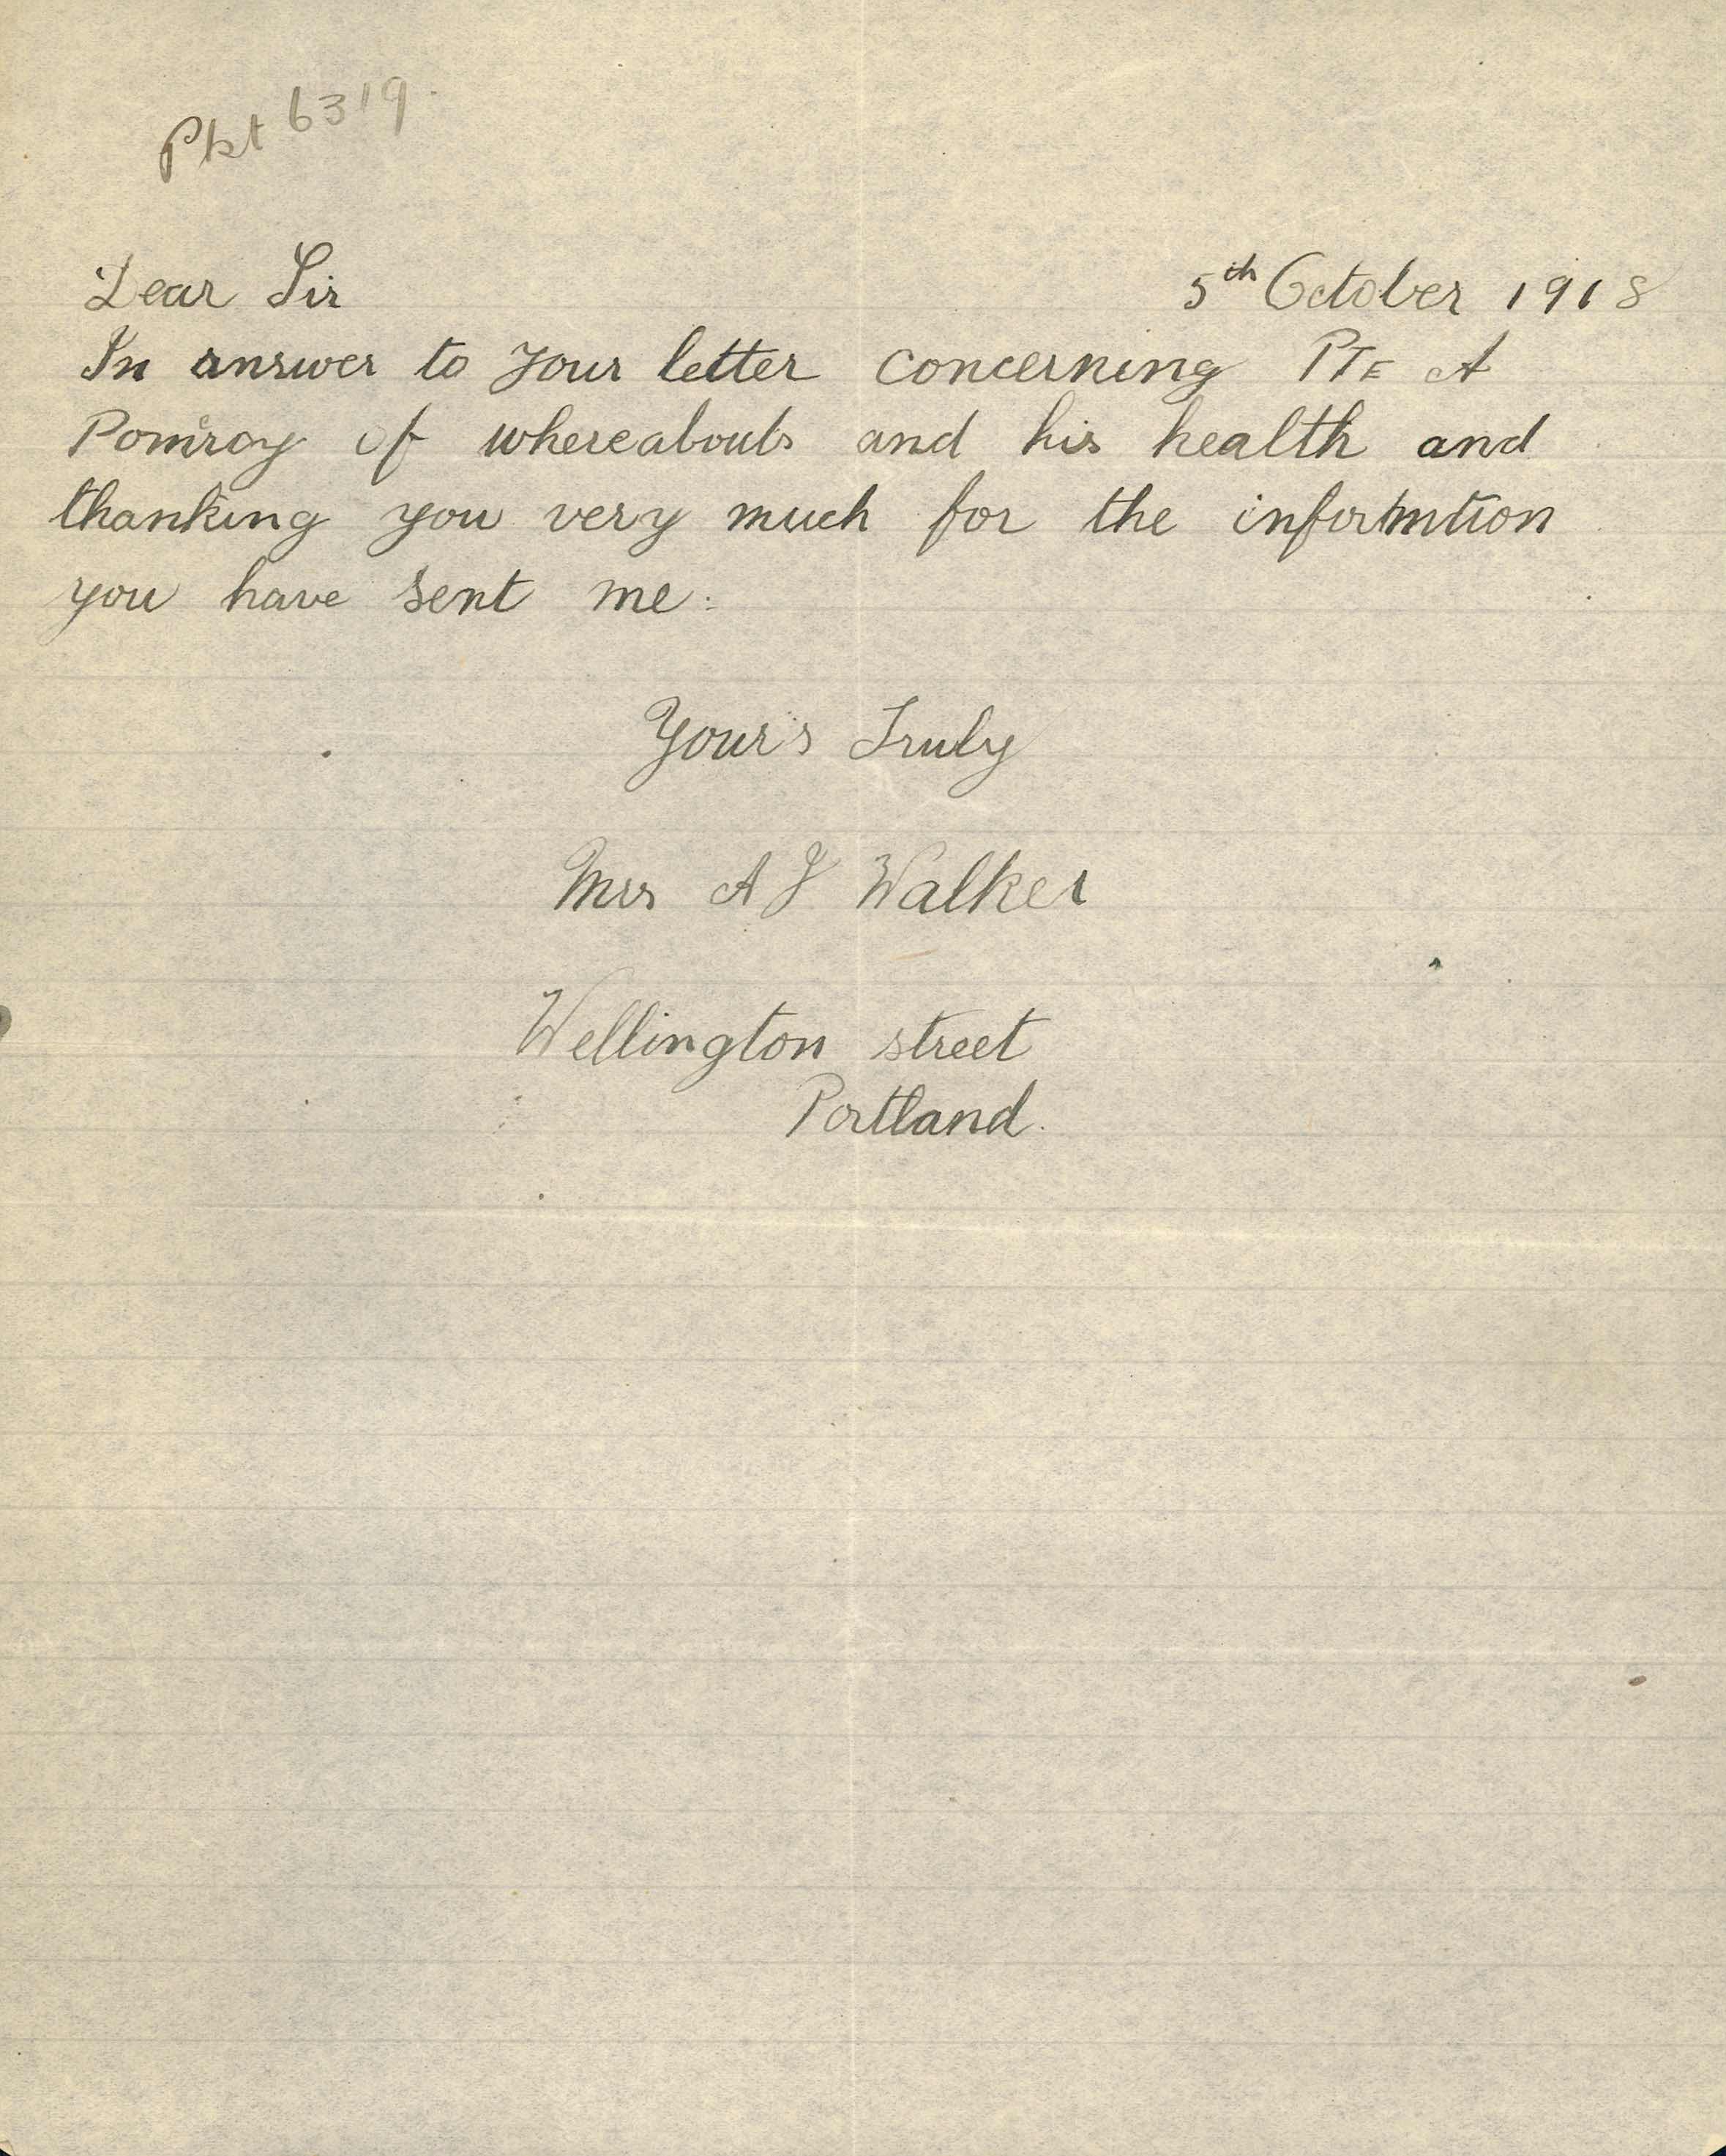 Pkt 6319.
Dear Sir 5th October 1918
In answer to your letter concerning PTE A
Pomroy of whereabouts and his health and
thanking you very much for the informtion
you have sent me:
Your's Truly
Mrs A J Walker
Wellington street
Portland.